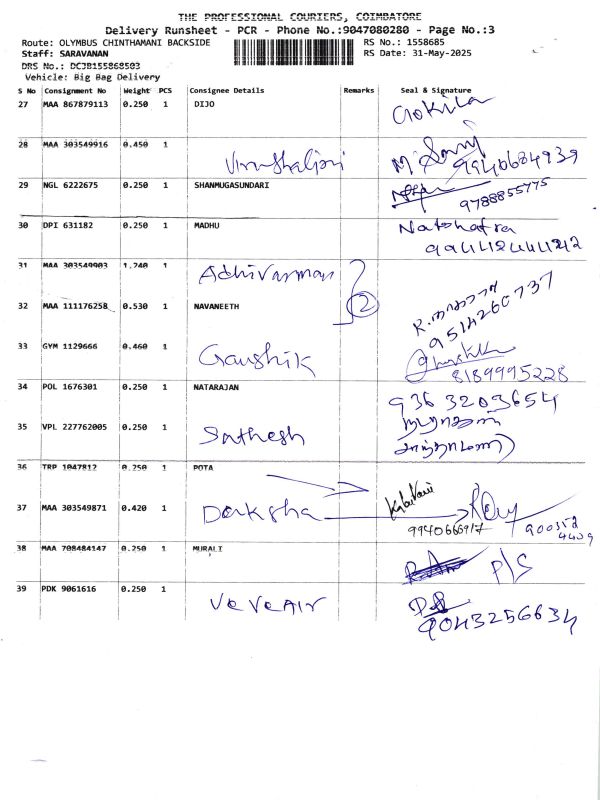 THE PROFESSIONAL COURIERS, COIMBATORE
Delivery Runsheet - PCR - Phone No.:9047080280 - Page No.:3
Route: OLYMBUS CHINTHAMANI BACKSIDE RS No.: 1558685
Staff: SARAVANAN RS Date: 31-May-2025
DRS No.: DCJB155868503
Vehicle: Big Bag Delivery
S No Consignment No Weight PCS Consignee Details Remarks Seal & Signature
27 MAA 867879113 0.250 1 DIJO Gokila
28 MAA 303549916 0.450 1
9940684939
29 NGL 6222675 0.250 1 SHANMUGASUNDARI
9788855775
30 DPI 631182 0.250 1 MADHU
31 MAA 303549903 1.240 1 Adhivarman
2
32 MAA 111176258 0.530 1 NAVANEETH
9514260737
33 GYM 1129666 0.460 1 Gaushik
8189995228
34 POL 1676301 0.250 1 NATARAJAN 936 3203654
நடராஜன்
35 VPL 227762005 0.250 1 Sathesh
36 TRP 1047812 0.250 1 POTA
37 MAA 303549871 0.420 1 Daksha
38 MAA 708484147 0.250 1 MURALI P/S
39 PDK 9061616 0.250 1 VeVeAir
9043256634